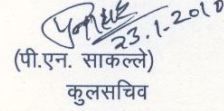 23.1.2010
(पी.एन. साकल्ले)
कुलसचिव